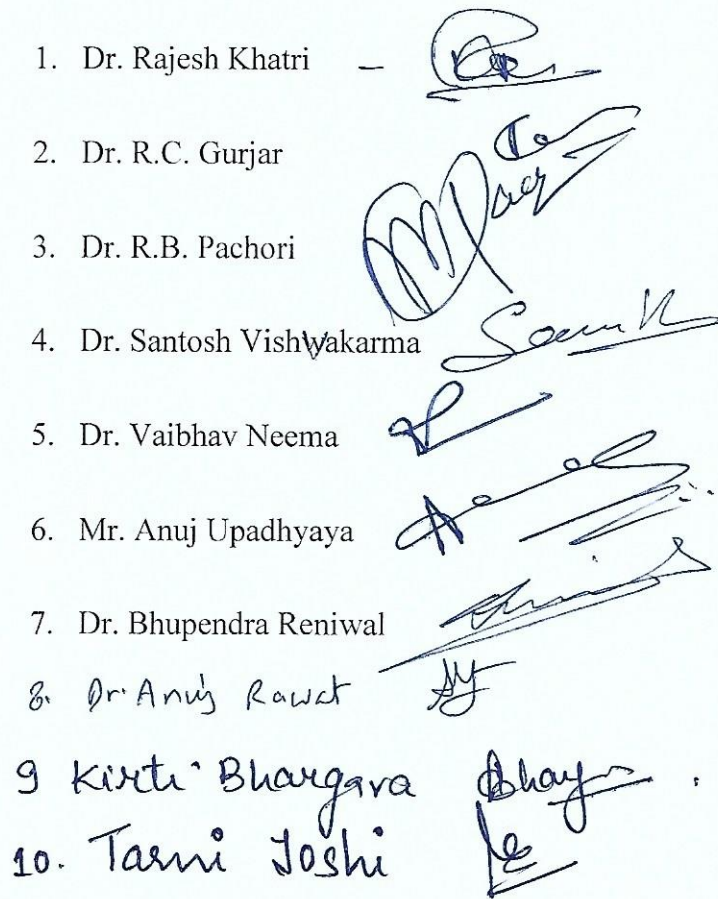 1. Dr. Rajesh Khatri –
2. Dr. R.C. Gurjar
3. Dr. R.B. Pachori
4. Dr. Santosh Vishwakarma
5. Dr. Vaibhav Neema
6. Mr. Anuj Upadhyaya
7. Dr. Bhupendra Reniwal
8. Dr. Anuj Rawat
9 Kirti Bhargava
10. Tarni Joshi